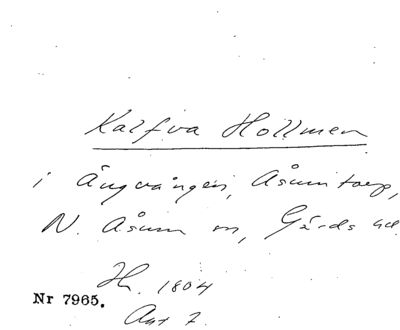 Kalfva Hollmen
i Ängvången, Åsumtorp,
N. Åsum sn, Gärds hd.
Hr. 1804
Nr 7965.
Akt 7.